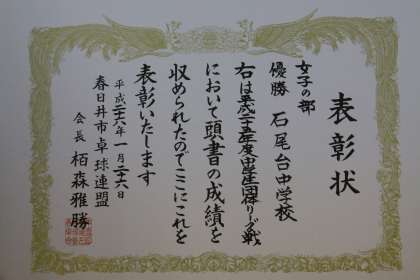 表彰状
女子の部
優勝 石尾台中学校
右は平成二十五年度中学生団体リーグ戦
において頭書の成績を
収められたのでここにこれを
表彰いたします
平成二十六年一月二十六日
春日井市卓球連盟
会長 栢森雅勝